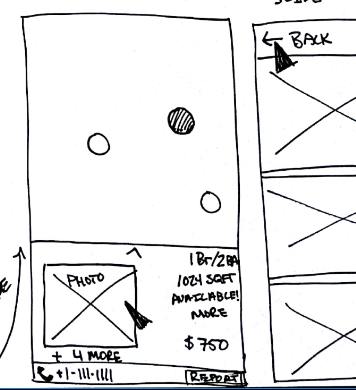 ← BACK
PHOTO
+ 4 MORE
1BR/2BA
1024 SQFT
AVAILABLE!
MORE
$750
+1-111-1111
REPORT